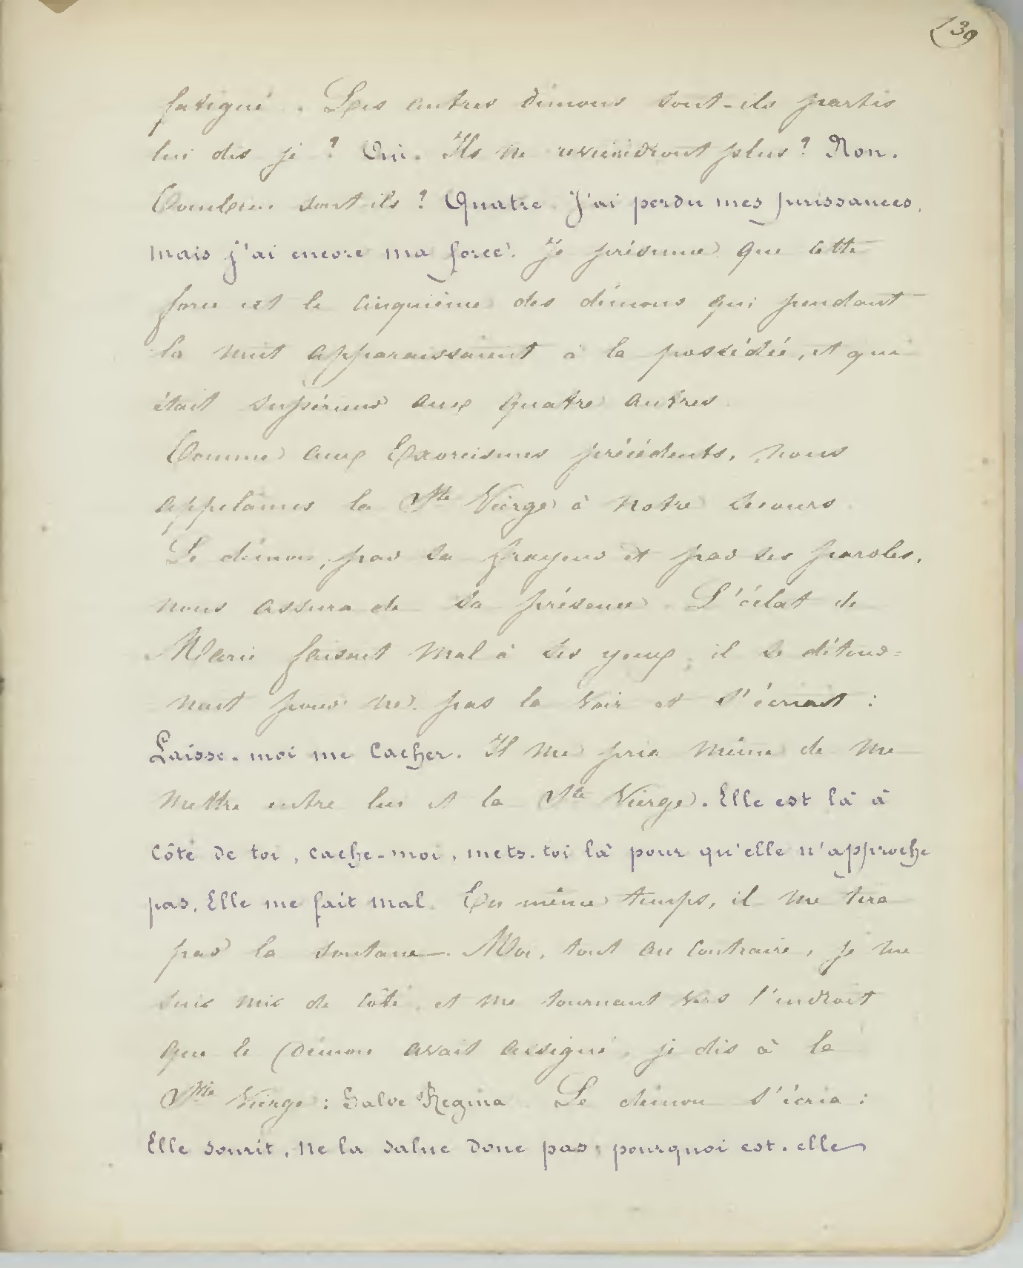 139
fatigué. Les autres démons sont-ils partis
lui dis je ? Oui. Ils ne reviendront plus ? Non.
Combien sont ils ? Quatre. J'ai perdu mes puissances,
mais j'ai encore ma force. Je présume que cette
force est le cinquième des démons qui pendant
la nuit apparaissaient à la possédée, et qui
était supérieur aux quatre autres.
Comme aux Exorcismes précédents, nous
appelâmes la Ste Vierge à notre secours.
Le démon, par sa frayeur et par ses paroles,
nous assura de sa présence. L'éclat de
Marie faisait mal à ses yeux, il se détour=
nait pour ne pas la voir et s'écriait :
Laisse-moi me cacher. Il me pria même de me
mettre entre lui et la Ste Vierge. Elle est là à
côté de toi, cache-moi, mets-toi là pour qu'elle n'approche
pas. Elle me fait mal. En même temps, il me tira
par la soutane. Moi, tout au contraire, je me
suis mis de côté, et me tournant vers l'endroit
que le démon avait assigné, je dis à la
Ste Vierge : Salve Regina. Le démon s'écria :
Elle sourit, ne la salue donc pas, pourquoi est-elle